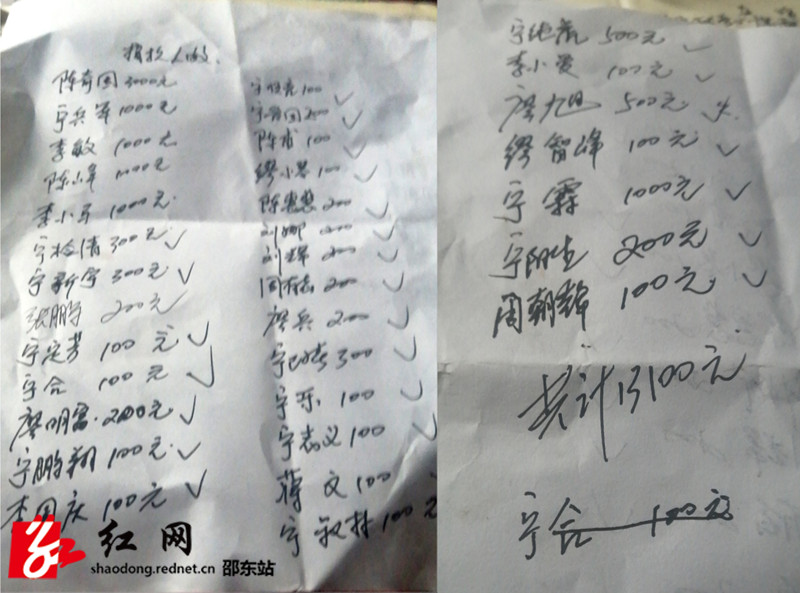 捐款人的
陈奇国3000元
宁兵军1000元
李敏 1000元
陈小军 1000元
李小军 1000元
宁检清300元
宁新宇300元
张鹏宇 200元
宁定芳 100元
宁合 100元
廖明富 200元
宁鹏翔 100元
李国庆 100元
100
200
陈甫 100
缪小琴 100
陈惠慧 200
刘娜 200
刘辉 200
200
廖兵 200
300
宁乐 100
宁志义 100
蒋文 100
宁毅林 100元
500元
李小爱 100元
廖旭 500元
缪智峰 100元
宁霖 1000元
宁阳生 200元
周朝辉 100元
共计13100元
宁合 100元
红网
shaodong.rednet.cn 邵东站